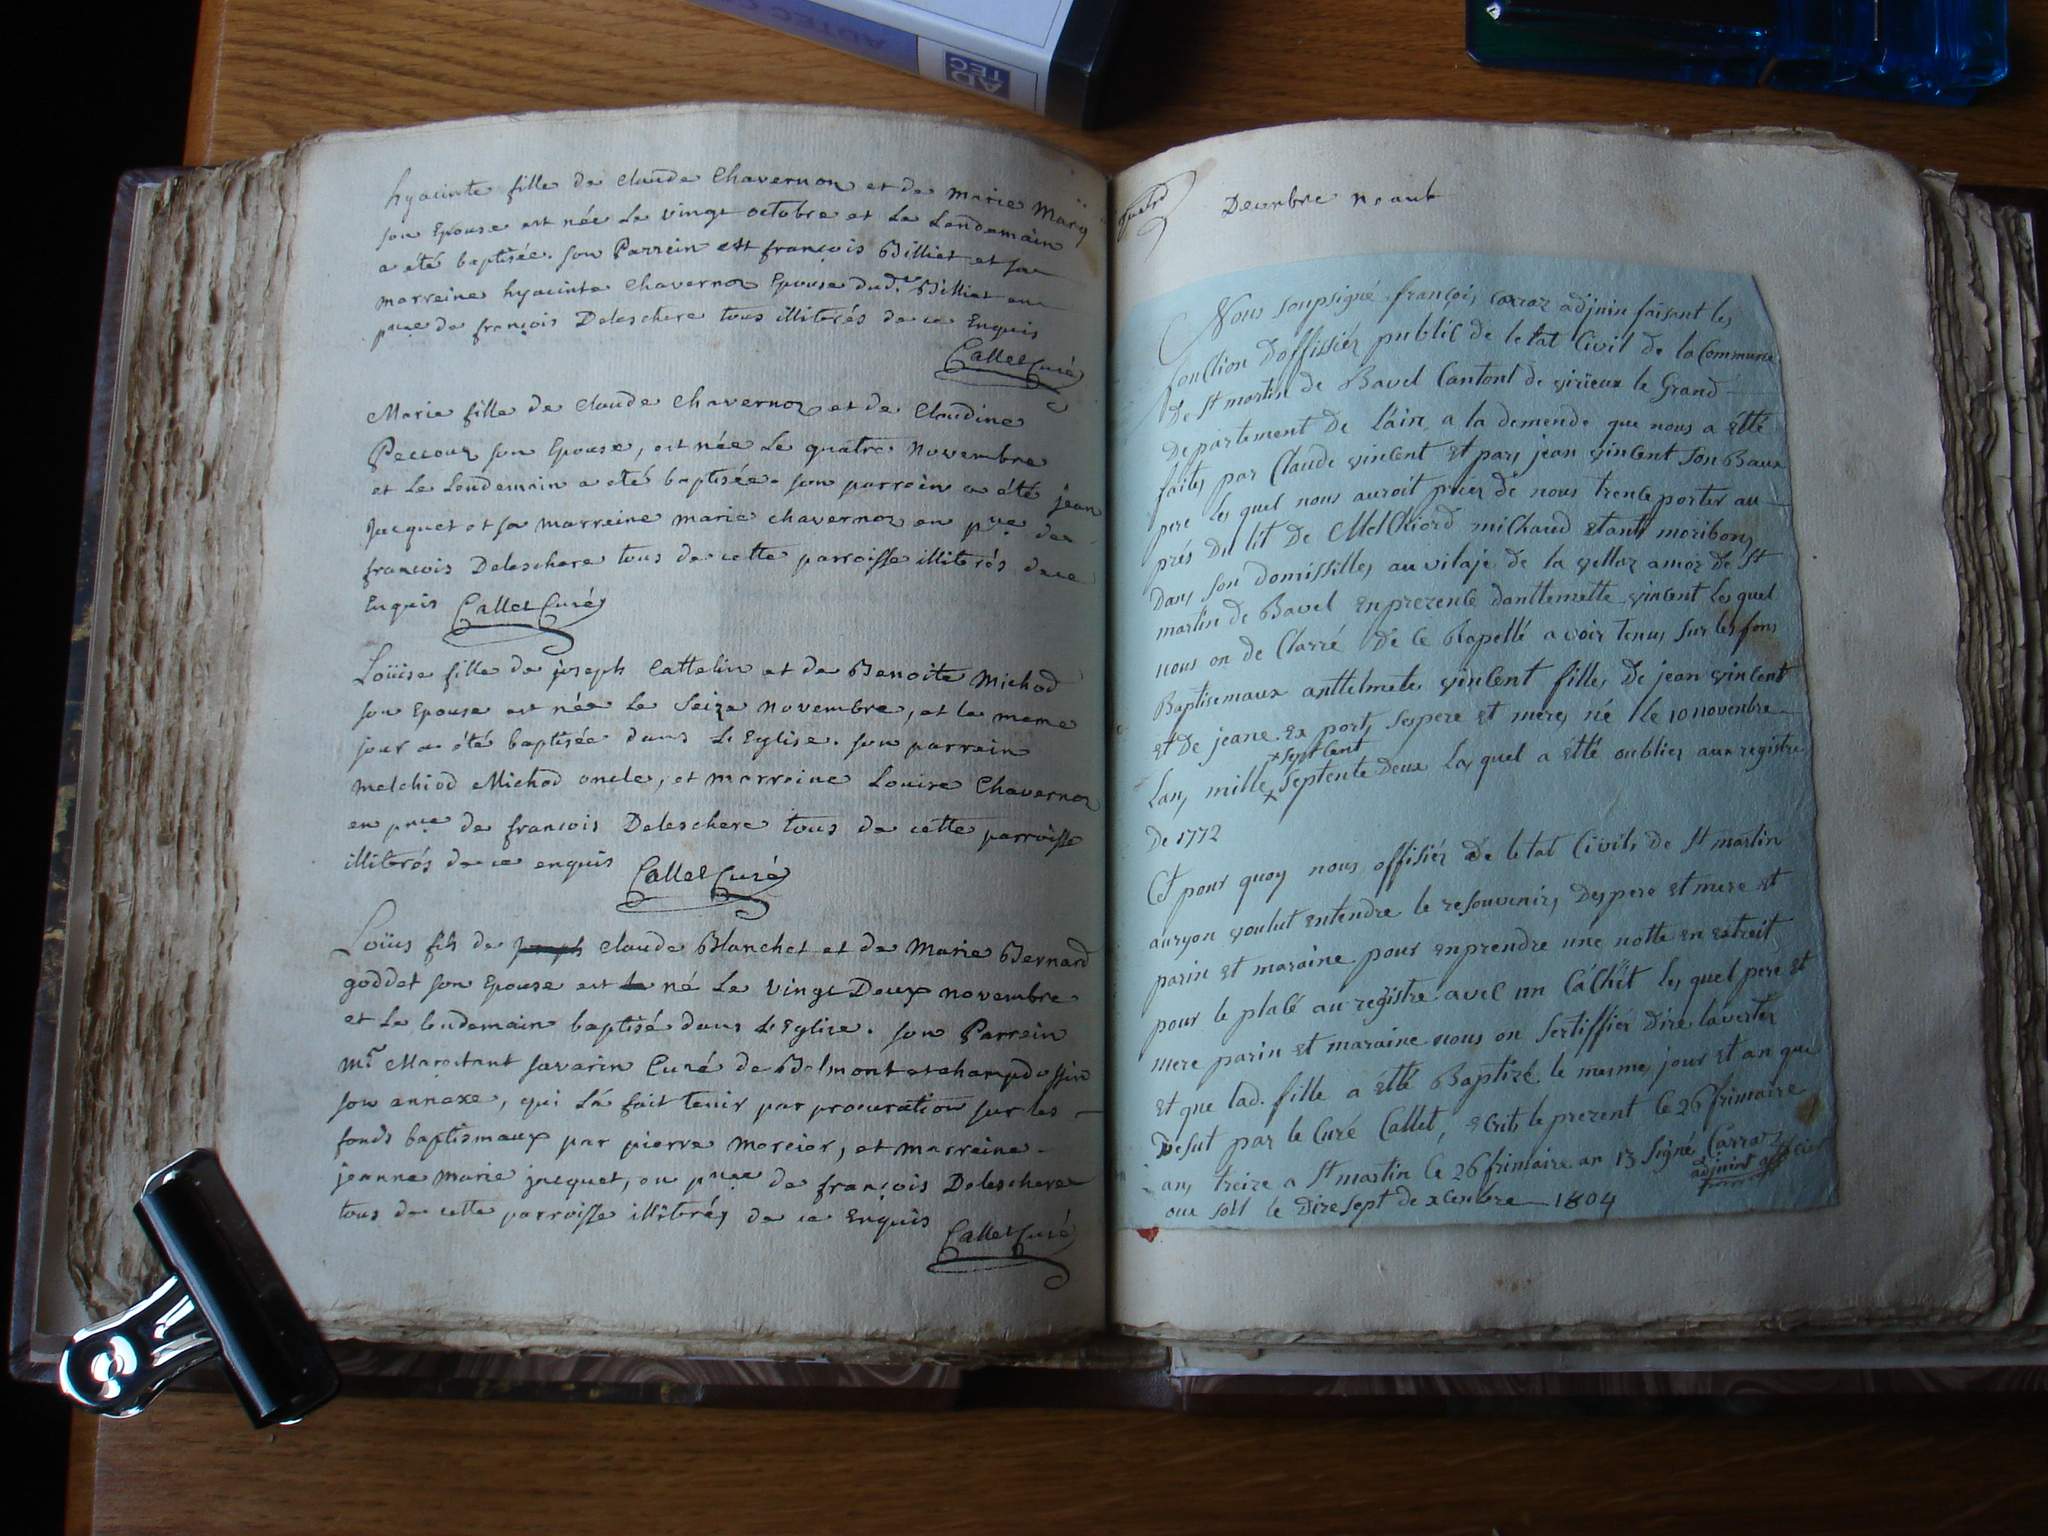 ADTEC
AD
TEC
hyacinte fille de claude Chavernoz et de marie Mary
son Epouse est née Le vingt octobre et Le Lendemain
a été baptisée. son Parrein est françois Billiet et sa
marreine hyacinte Chavernoz Epouse dud.t Billiet en
pnce de françois Deleschere tous illiterés de ce Enquis
Callet Curé
Marie fille de claude Chavernoz et de Claudine
Peccouz son Epouse, est née Le quatre novembre
et Le Lendemain a eté baptisée. son parrein a été jean
Jacquet et sa marreine marie chavernoz en pnce de
francois Deleschere tous de cette parroisse illiterés de ce
Enquis Callet Curé
Loüise fille de joseph Cattelin et de Benoite Michod
son Epouse est née Le Seize novembre, et le meme
jour a été baptisée dans L'Eglise. son parrein
melchiod Michod oncle, et marreine Louise Chavernoz
en pnce de francois Deleschere tous de cette parroisse
illiterés de ce enquis Callet Curé
Loüis fils de joseph claude Blanchet et de Marie Bernard
goddet son Epouse est né Le vingt Deux novembre
et Le lendemain baptisé dans L'Eglise. son Parrein
mr. Marcitant savarin Curé de Belmont et champdossin
son annexe, qui L'a fait tenir par procuration sur les
fonds baptismaux par pierre mercier, et marreine
jeanne marie jacquet, en pnce de françois Deleschere
tous de cette parroisse illiterés de ce Enquis
Callet Curé
Decembre neant
Nous soupsigné françois carraz adjnin faisant les
fonction d'offissiér public de letat Civil de la Commune
De St martin de Bavel Cantont de virieux le Grand
Departement De L'ain, a la demende que nous a étté
faites par Claude vincent et par jean vincent son Baux
pere les quel nous auroit priér de nous trenteporter au
prés Du lit De Melchiord michaud etant moribon
Dans son domissilles au vilaje de la vellaz amoz de St
martin de Bavel en prezence danttemette vincent les quel
nous on de Clarré De ce Rapellé a voir tenus sur les fons
Baptisemaux anttelmete vincent filles De jean vincent
et De jeane Ex port, ses pere et mere, né le 10 novenbre
Lan, mille x septente Deux La quel a étté oublier aux registre
x sept Cent
De 1772
Et pour quoy nous offisiér de letat Civils de St martin
auryon voulut entendre le resouvenir, Des pere et mere et
parin et maraine pour en prendre une notte en extreit
pour le placé au registre avec un Cachét Les quel pere et
mere parin et maraine nous on sertiffiér dire laverter
et que lad. fille a étté Baptizé le mesme jour et an que
Desut par le Curé Callet, ecrits le prezent le 26 frimaire
an, treize a St martin le 26 frimaire an 13 Signé Carraz
adjoint officier
oux soit le Dixe sept de xcenbre 1804